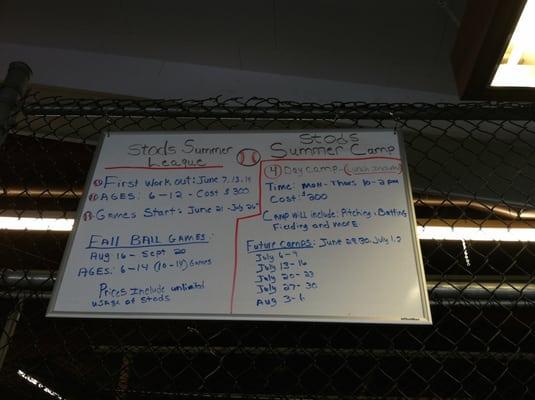 Stods Summer
League
First Work out: June 7, 13, 14
AGES: 6-12 - Cost $300
Games Start: June 21 - July 26
Fall Ball Games:
Aug 16 - Sept 20
AGES: 6-14 (10-14) Games
Prices Include unlimited
usage of Stods
Stods
Summer Camp
4 Day Camp - Lunch Included
Time: Mon-Thurs 10-2 pm
Cost: $200
Camp will include: Pitching, Batting
Fielding and more
Future Camps: June 29, 30, July 1, 2
July 6-9
July 13-16
July 20-23
July 27-30
Aug 3-6